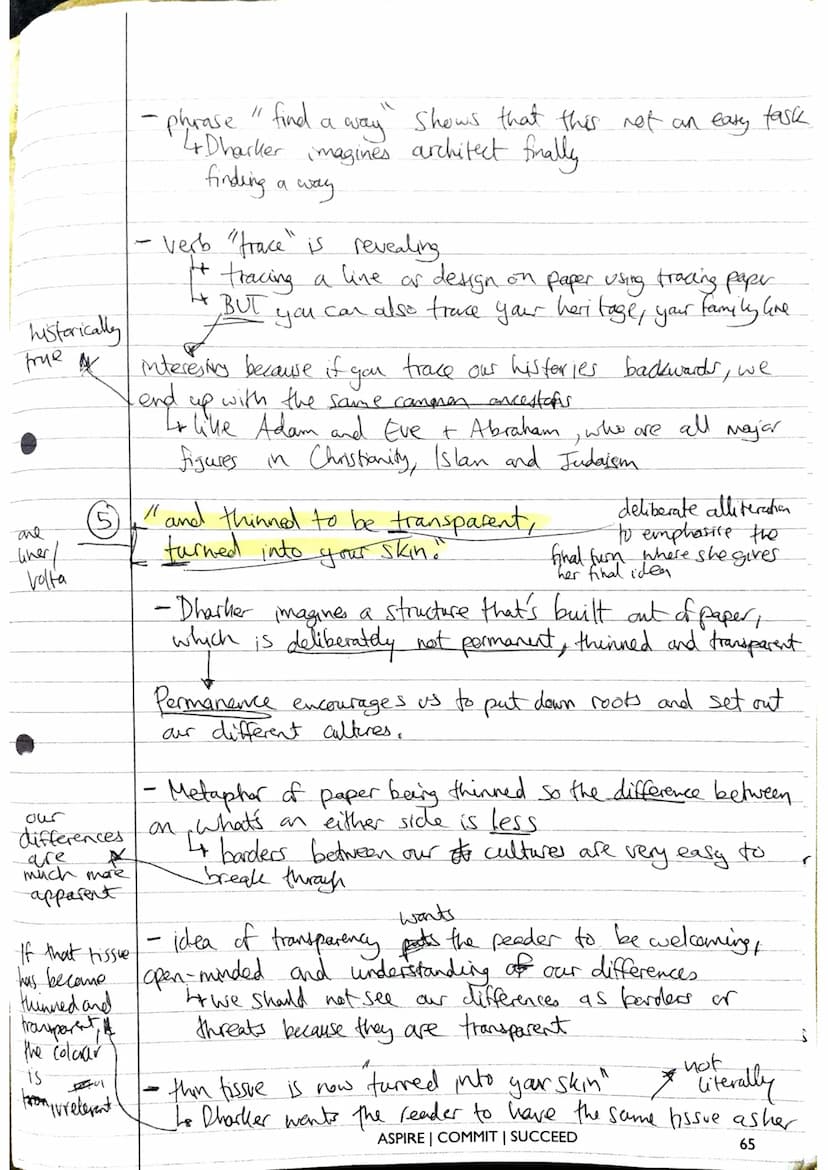 - phrase "find a way" shows that this not an easy task
↳ Dharker imagines architect finally
finding a way
- verb "trace" is revealing
↳ tracing a line or design on paper using tracing paper
↳ BUT you can also trace your heritage, your family line
historically
true
interesting because if you trace our histories backwards, we
end up with the same common ancestors
↳ like Adam and Eve + Abraham, who are all major
figures in Christianity, Islam and Judaism
⑤ "and thinned to be transparent,
turned into your skin."
one
liner/
volta
deliberate alliteration
to emphasise the
final turn where she gives
her final idea
- Dharker imagines a structure that's built out of paper,
which is deliberately not permanent, thinned and transparent
Permanence encourages us to put down roots and set out
our different cultures.
- Metaphor of paper being thinned so the difference between
on what's on either side is less
↳ borders between our cultures are very easy to
break through
our
differences
are
much more
apparent
- idea of transparency wants the reader to be welcoming,
open-minded and understanding of our differences
↳ we should not see our differences as borders or
threats because they are transparent
If that tissue
has become
thinned and
transparent,
the colour
is
irrelevant
- thin tissue is now "turned into your skin"
not
literally
↳ Dharker wants the reader to have the same tissue as her
ASPIRE | COMMIT | SUCCEED
65